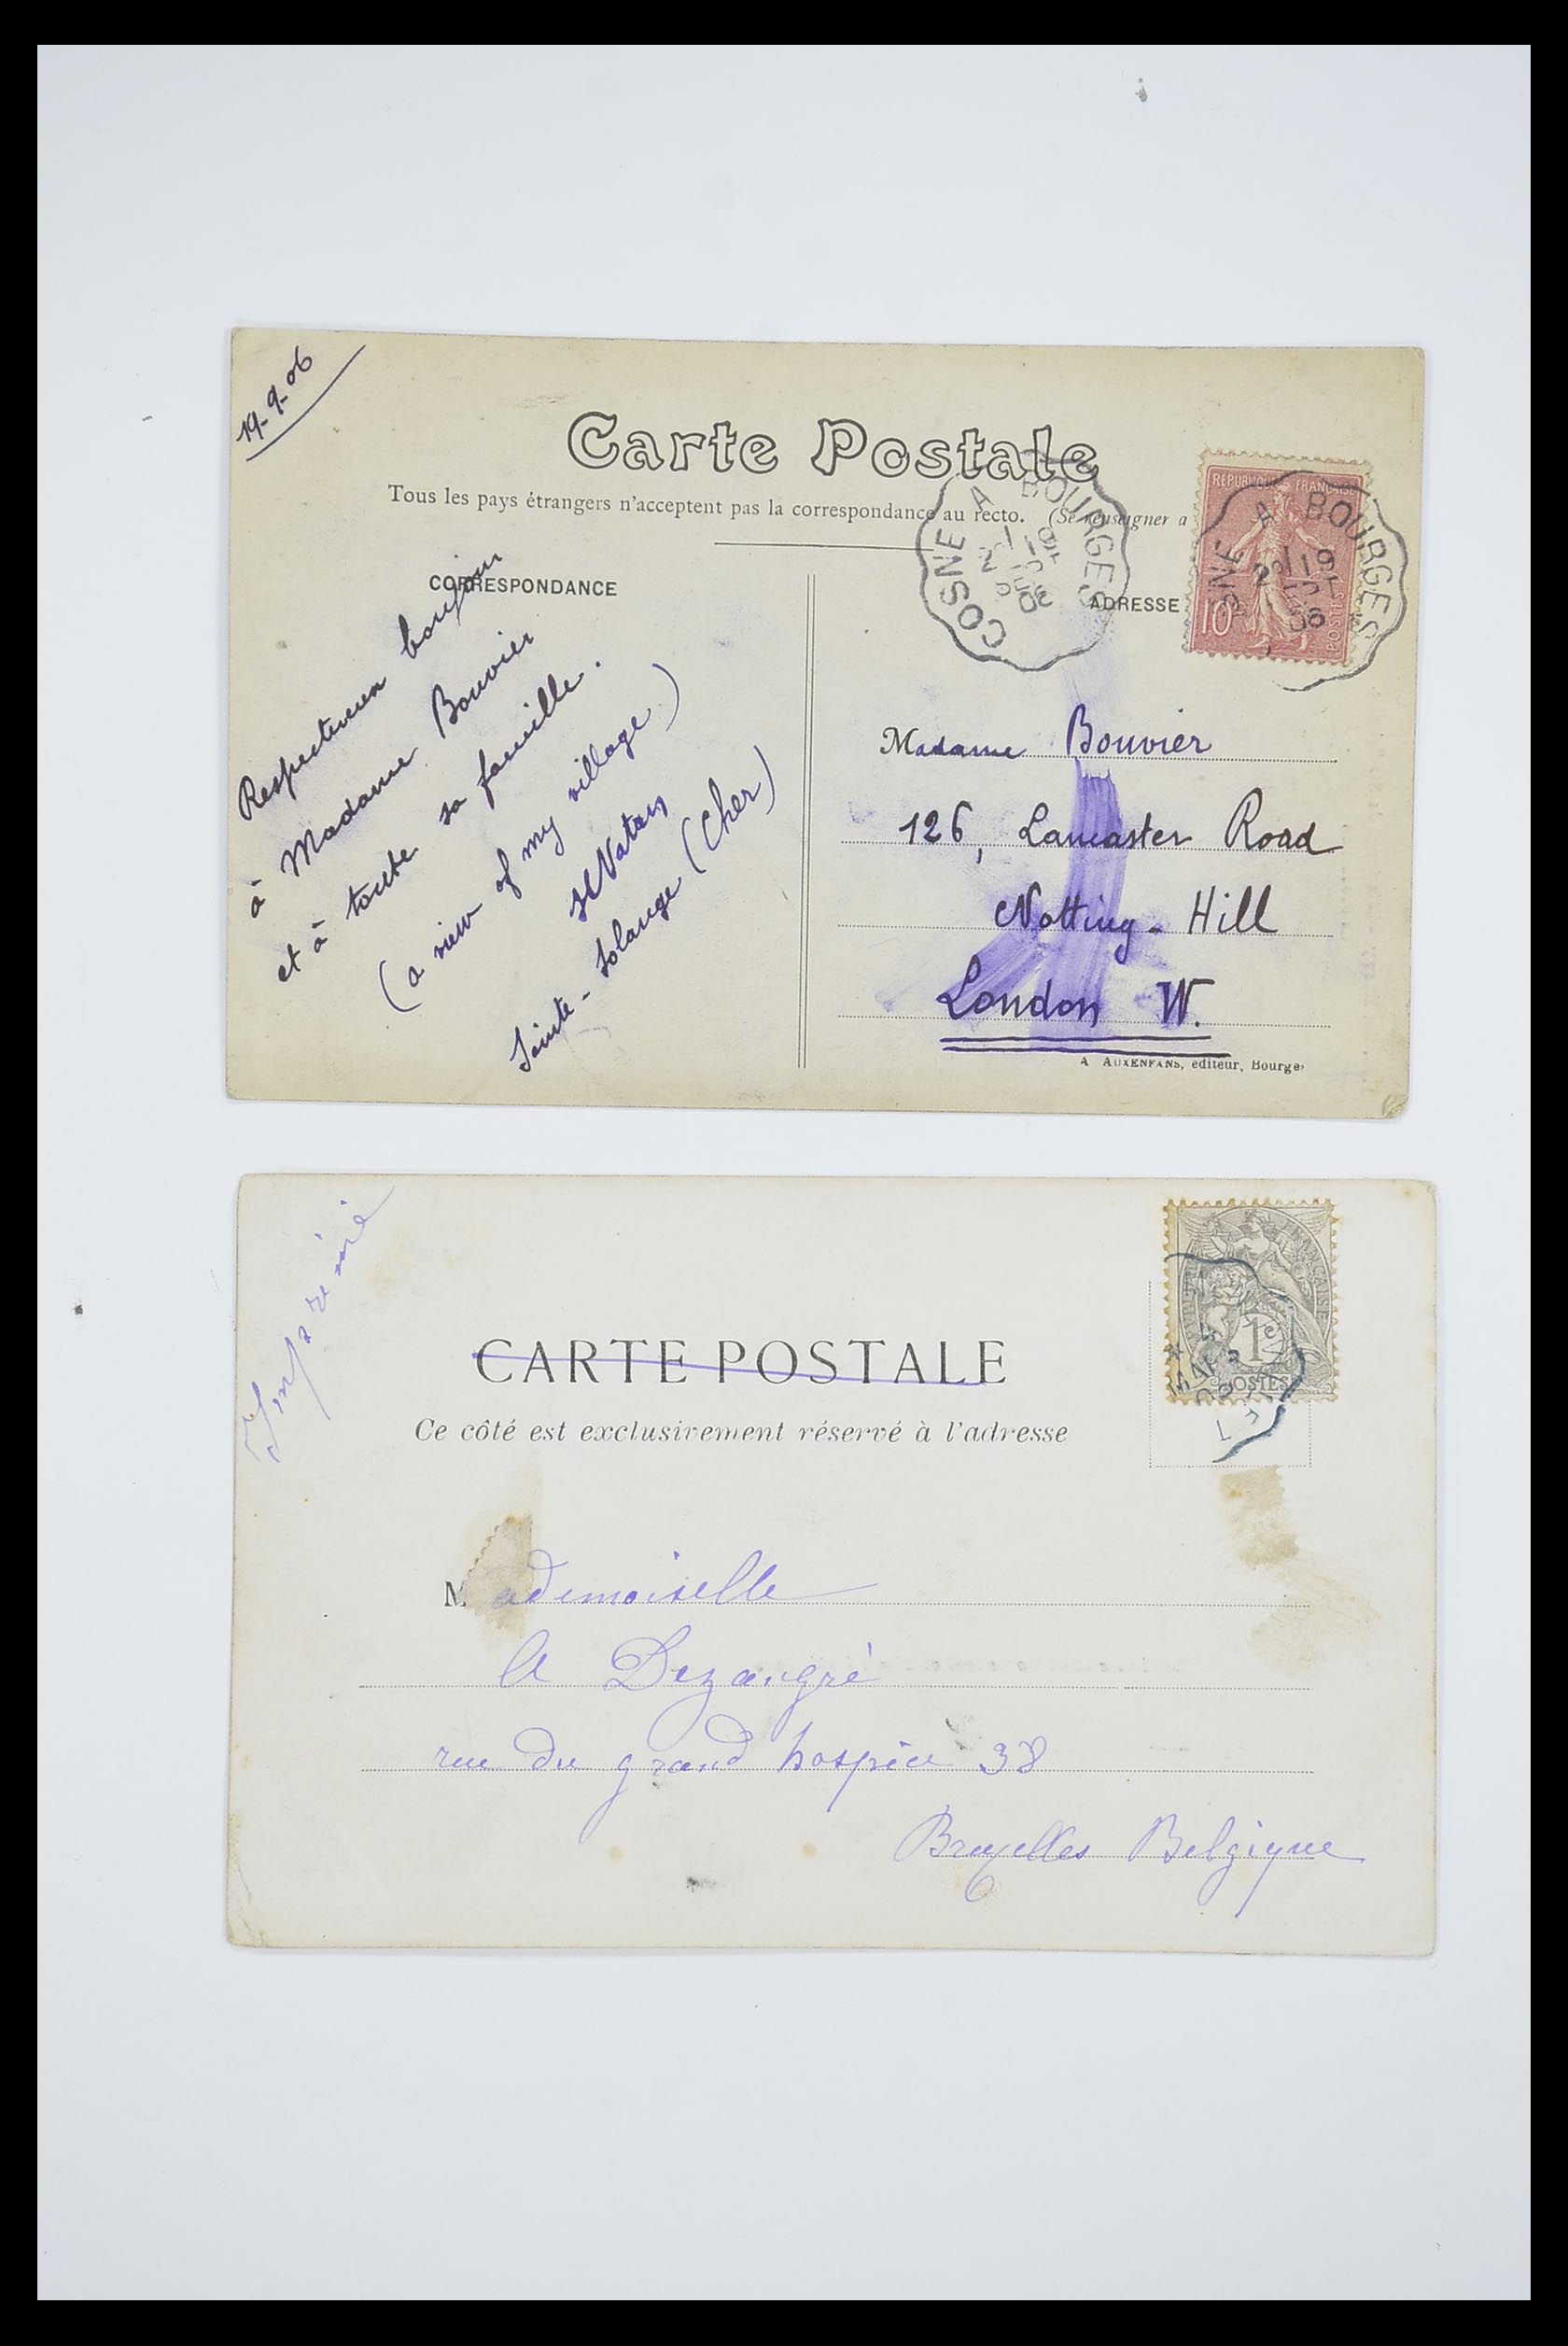 19-9-06
Carte Postale
Tous les pays étrangers n'acceptent pas la correspondance au recto. (Se renseigner a
CORRESPONDANCE
ADRESSE
COSNE A BOURGES
RÉPUBLIQUE FRANÇAISE
10
POSTES
A BOURGES
19
Respectueux bonjour
à Madame Bouvier
et à toute sa famille.
(a view of my village)
Sainte-Solange (Cher)
Madame Bouvier
126, Lancaster Road
Notting-Hill
London W.
A AUXENFANS, éditeur, Bourges
Imprimé
CARTE POSTALE
Ce côté est exclusivement réservé à l'adresse
1c
POSTES
Mademoiselle
A Dezangré
rue du grand hospice 38
Bruxelles Belgique